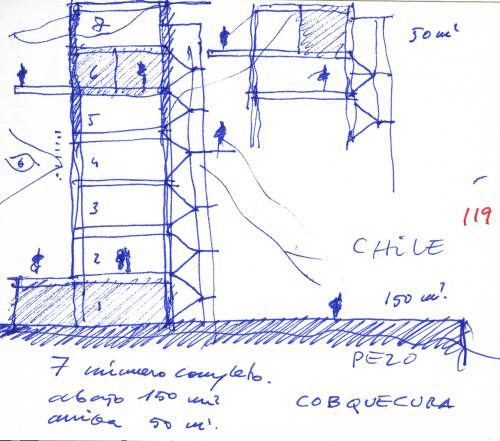 7
50 m²
6
5
6
4
119
3
CHiLE
2
150 m².
1
PEZO
7 número completo.
abajo 150 m²
arriba 50 m².
COBQUECURA